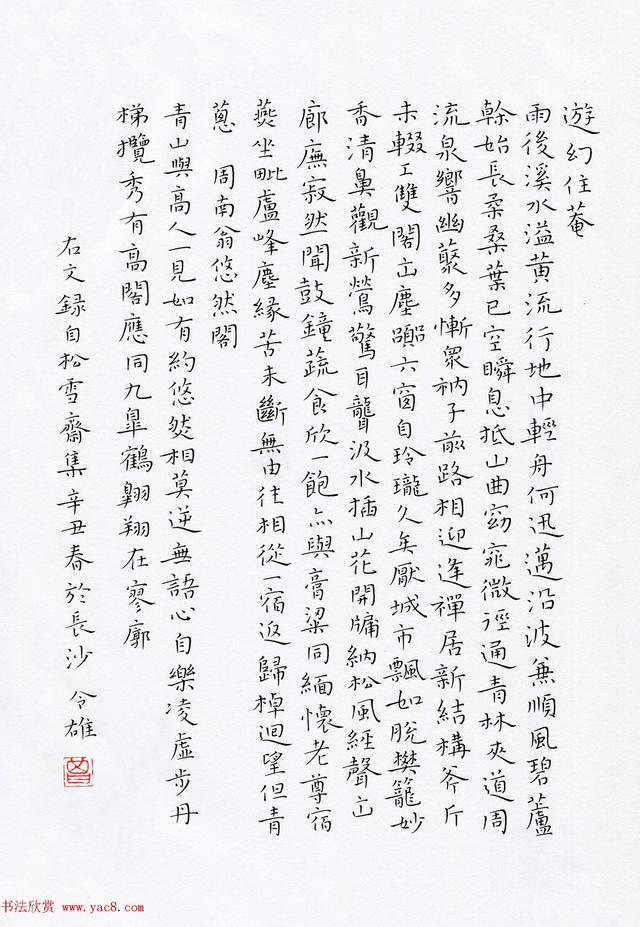 遊幻住菴
雨後溪水溢黄流行地中輕舟何迅邁沿波兼順風碧蘆
幹始長柔桑葉已空瞬息抵山曲窈窕微徑通青林夾道周
流泉響幽藂多慚衆衲子前路相迎逢禪居新結構斧斤
未輟工雙閣出塵躅六窗自玲瓏久矣厭城市飄如脫樊籠妙
香清鼻觀新鶯驚耳聾汲水插山花開牖納松風經聲出
廊廡寂然聞鼓鐘蔬食欣一飽亦與膏粱同緬懷老尊宿
燕坐毗盧峰塵緣苦未斷無由往相從一宿返歸棹迴望但青
蔥 周南翁悠然閣
青山與高人一見如有約悠然相莫逆無語心自樂凌虛步丹
梯攬秀有高閣應同九皐鶴翱翔在寥廓
右文録自松雪齋集辛丑春於長沙 令雄
书法欣赏 www.yac8.com